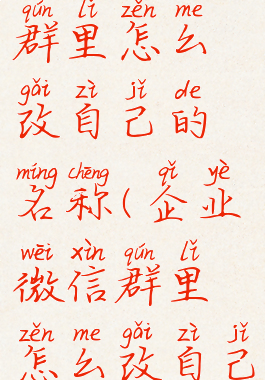 qún lǐ zěn me
群里怎么
gǎi zì jǐ de
改自己的
míng chēng qǐ yè
名称(企业
wēi xìn qún lǐ
微信群里
zěn me gǎi zì jǐ
怎么改自己